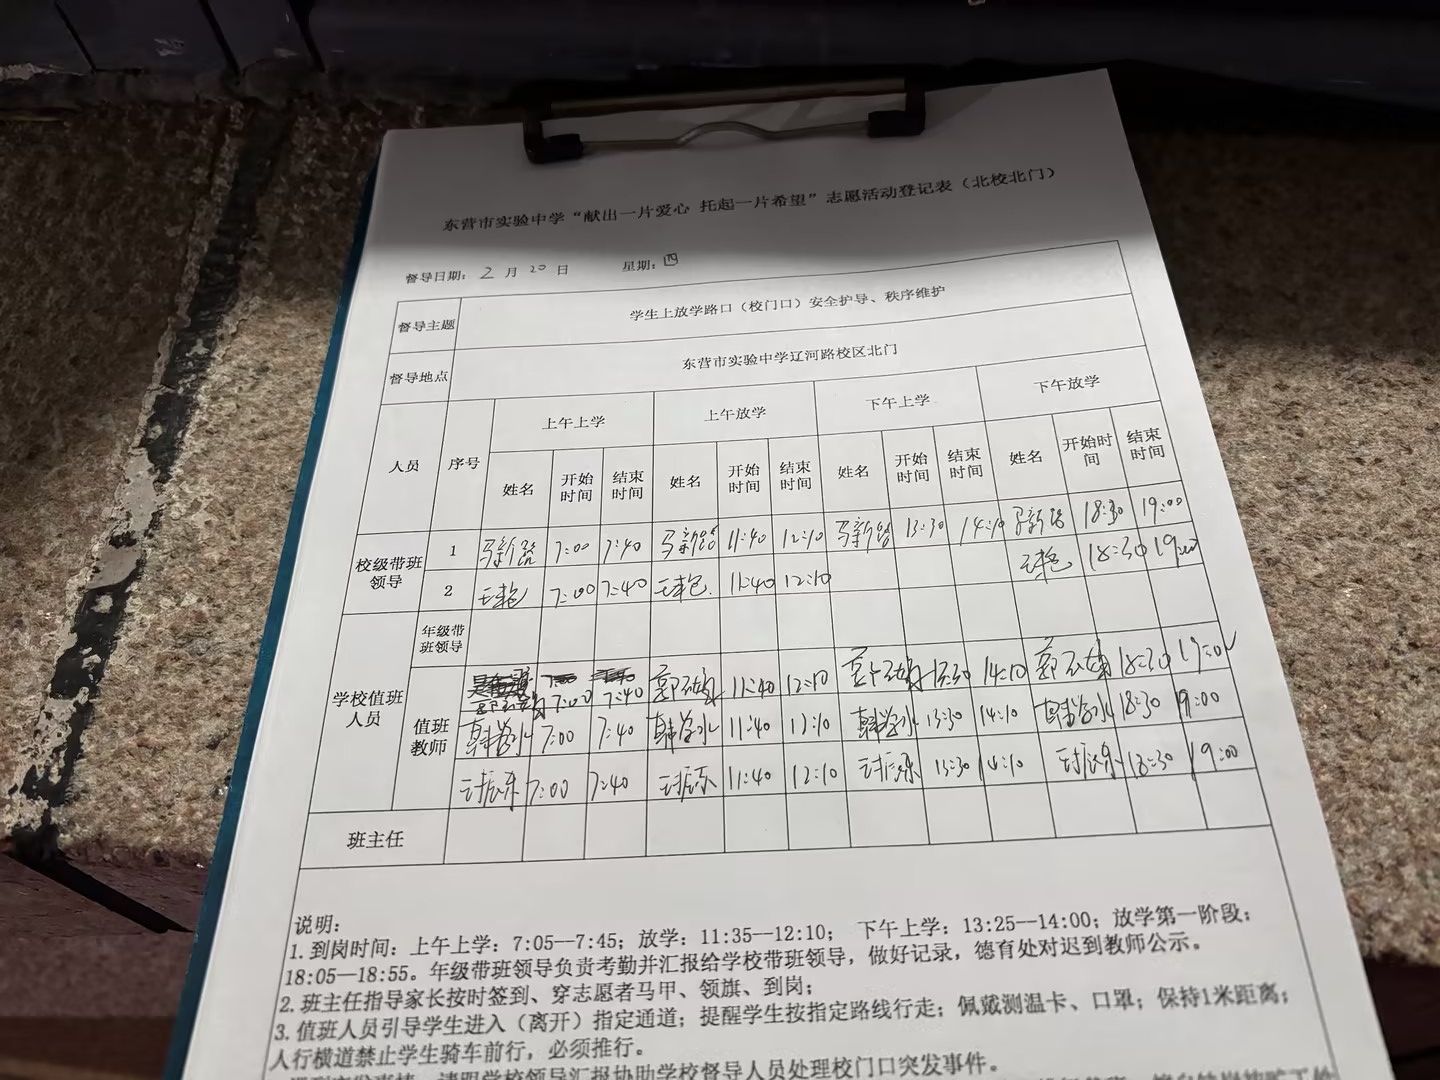 东营市实验中学“献出一片爱心 托起一片希望”志愿活动登记表（北校北门）
督导日期：2月20日 星期：四
督导主题 学生上放学路口（校门口）安全护导、秩序维护
督导地点 东营市实验中学辽河路校区北门
人员 序号 上午上学 上午放学 下午上学 下午放学
姓名 开始时间 结束时间 姓名 开始时间 结束时间 姓名 开始时间 结束时间 姓名 开始时间 结束时间
校级带班领导 1 马新路 7:00 7:40 马新路 11:40 12:10 马新路 13:30 14:10 马新路 18:30 19:00
2 7:00 7:40 11:40 12:10 18:30 19:00
学校值班人员 年级带班领导
值班教师 7:00 7:40 11:40 12:10 13:30 14:10 18:30 19:00
韩学水 7:00 7:40 韩学水 11:40 12:10 韩学水 13:30 14:10 韩学水 18:30 19:00
7:00 7:40 11:40 12:10 13:30 14:10 18:30 19:00
班主任
说明：
1. 到岗时间：上午上学：7:05--7:45；放学：11:35--12:10； 下午上学：13:25--14:00；放学第一阶段：
18:05--18:55。年级带班领导负责考勤并汇报给学校带班领导，做好记录，德育处对迟到教师公示。
2. 班主任指导家长按时签到、穿志愿者马甲、领旗、到岗；
3. 值班人员引导学生进入（离开）指定通道；提醒学生按指定路线行走；佩戴测温卡、口罩；保持1米距离；
人行横道禁止学生骑车前行，必须推行。
请跟学校领导汇报协助学校督导人员处理校门口突发事件。